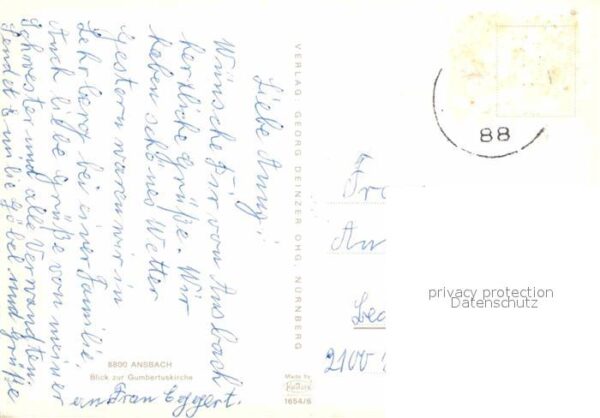 Liebe Anny!
Wünsche Dir von Ansbach
herzliche Grüße. Wir
haben schönes Wetter
Gestern waren wir in
Lehrberg bei einer Familie.
Auch liebe Grüße von meiner
Schwester und alle Verwandten.
Sendet Emilie Göbel und Grüße
an Frau Eggert.
8800 ANSBACH
Blick zur Gumbertuskirche
VERLAG: GEORG DEINZER OHG, NÜRNBERG
Made by
1654/6
88
Fr
An
2100
privacy protection
Datenschutz